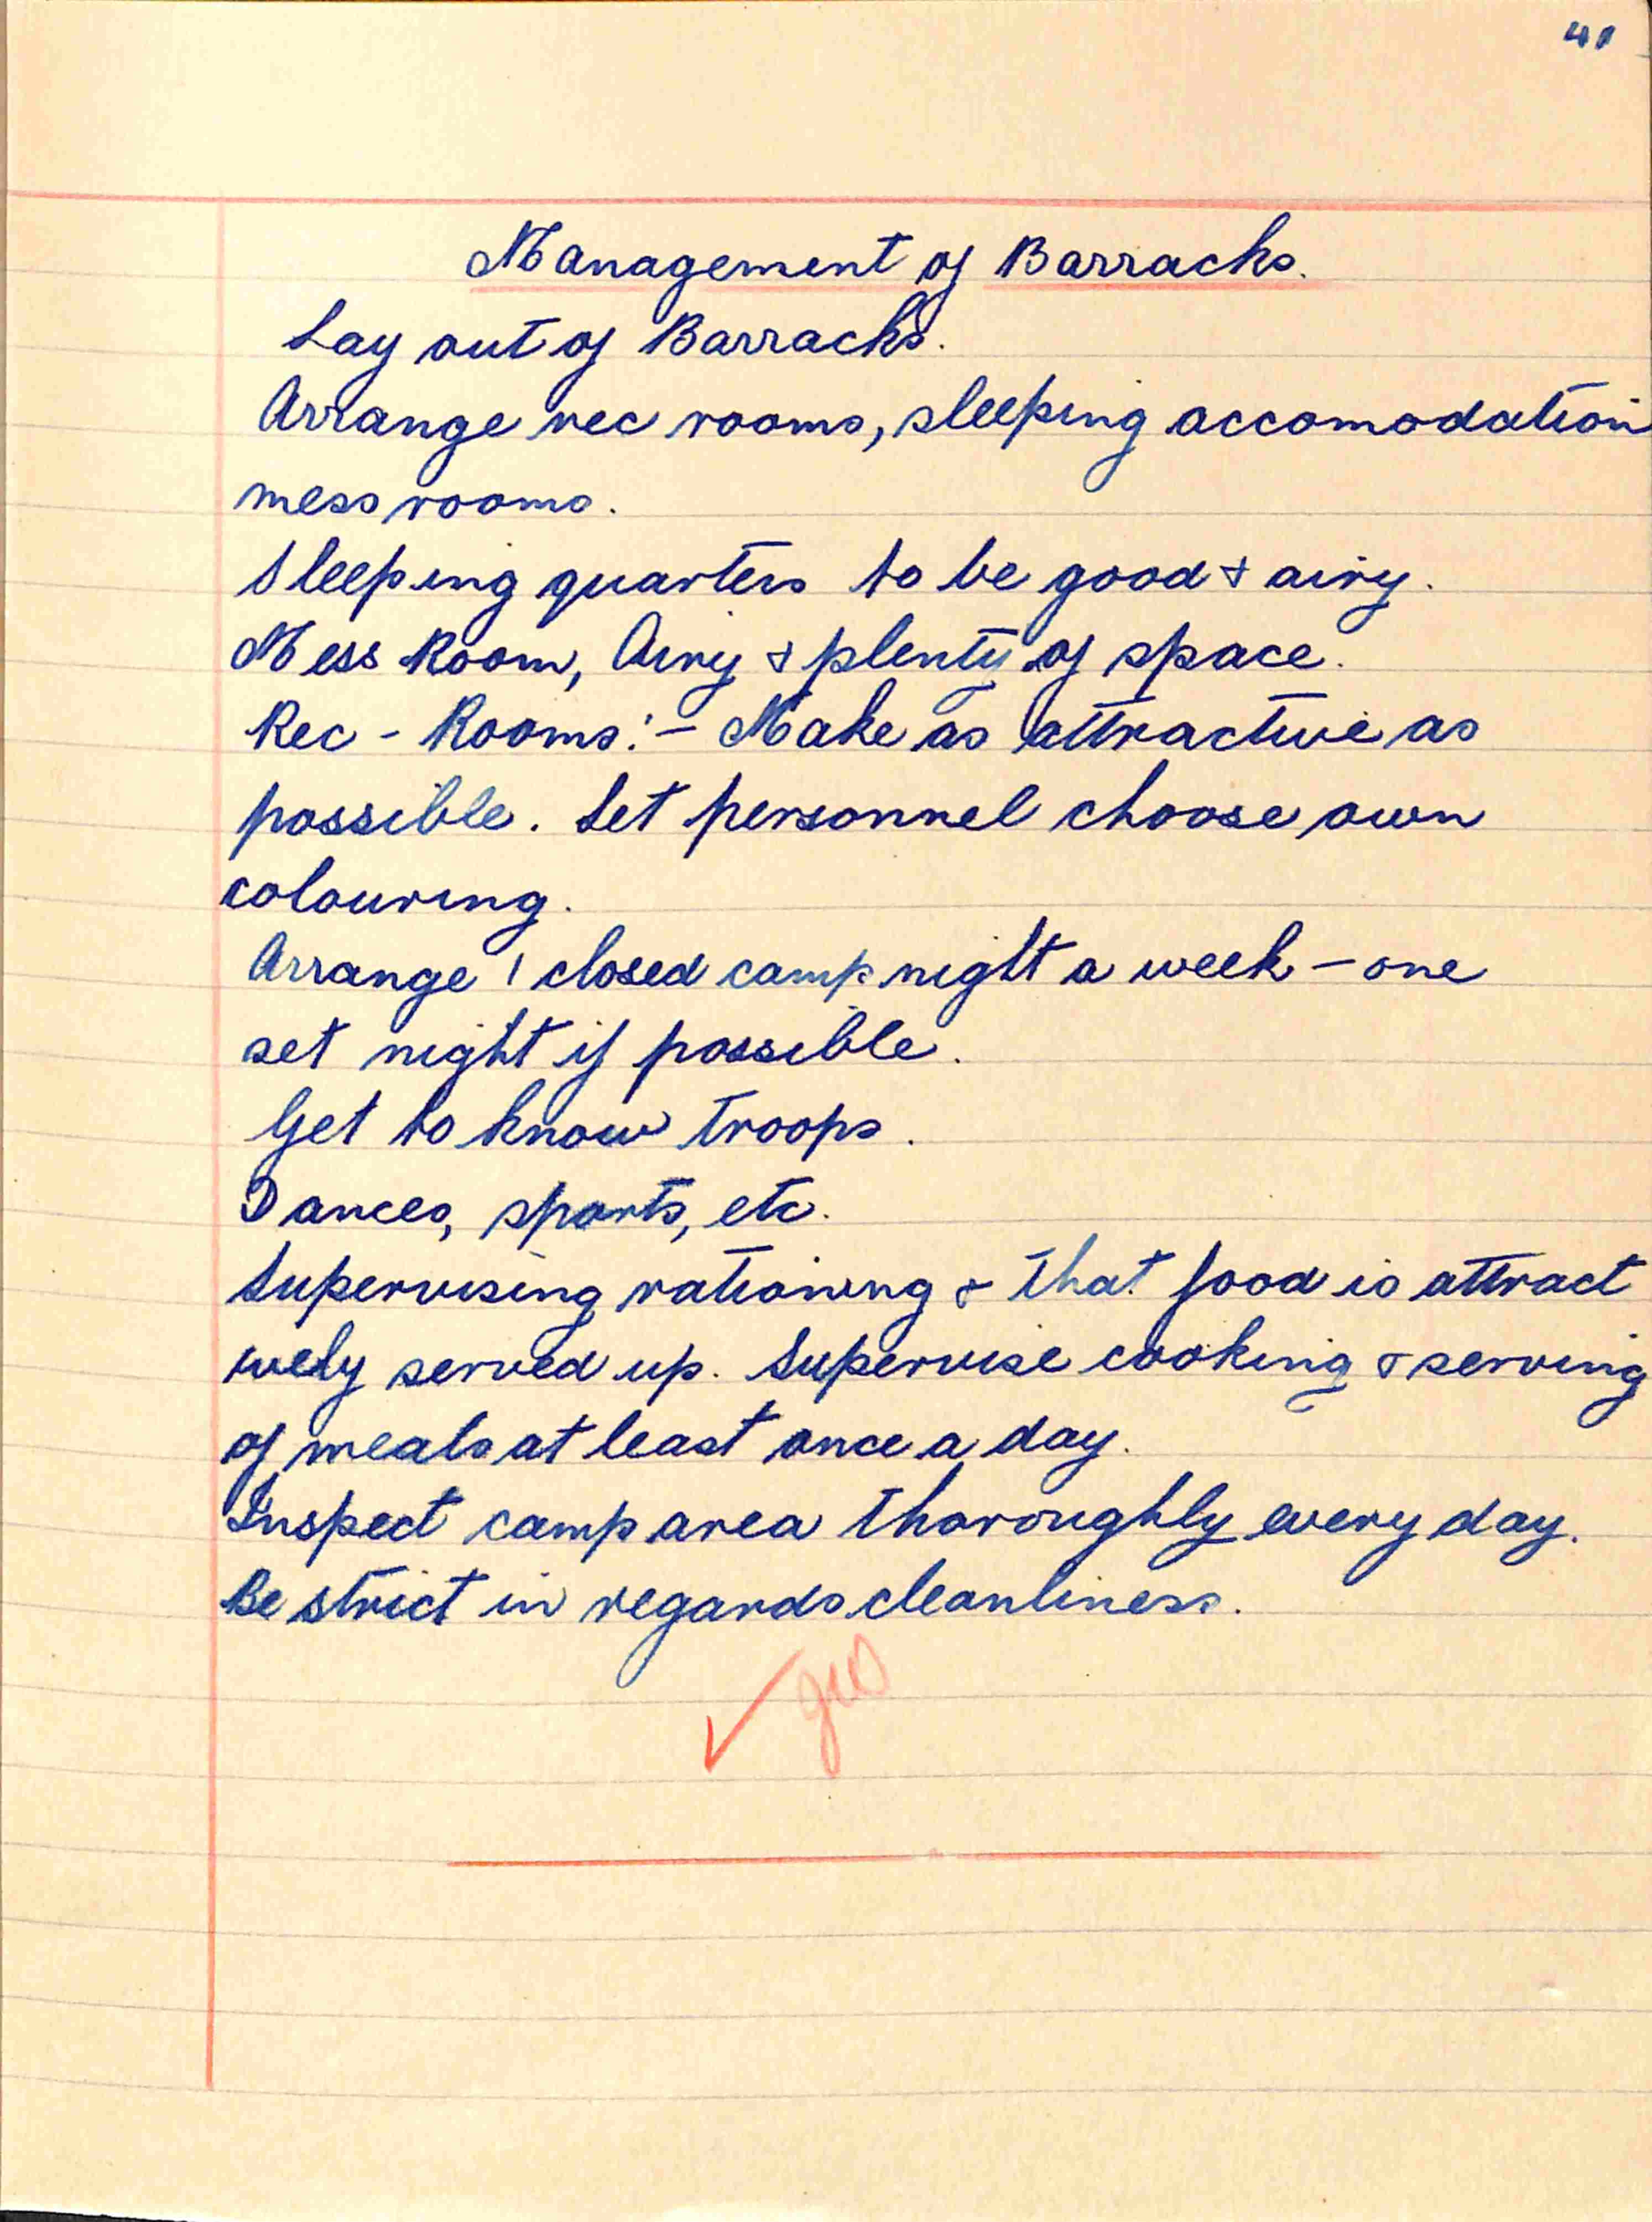 41
Management of Barracks.
Lay out of Barracks.
Arrange rec rooms, sleeping accomodation
mess rooms.
Sleeping quarters to be good & airy.
Mess Room, Airy & plenty of space.
Rec - Rooms:- Make as attractive as
possible. Let personnel choose own
colouring.
Arrange 1 closed camp night a week - one
set night if possible.
Get to know troops.
Dances, sports, etc.
Supervising rationing & that food is attract
ively served up. Supervise cooking & serving
of meals at least once a day.
Inspect camp area thoroughly every day.
Be strict in regards cleanliness.